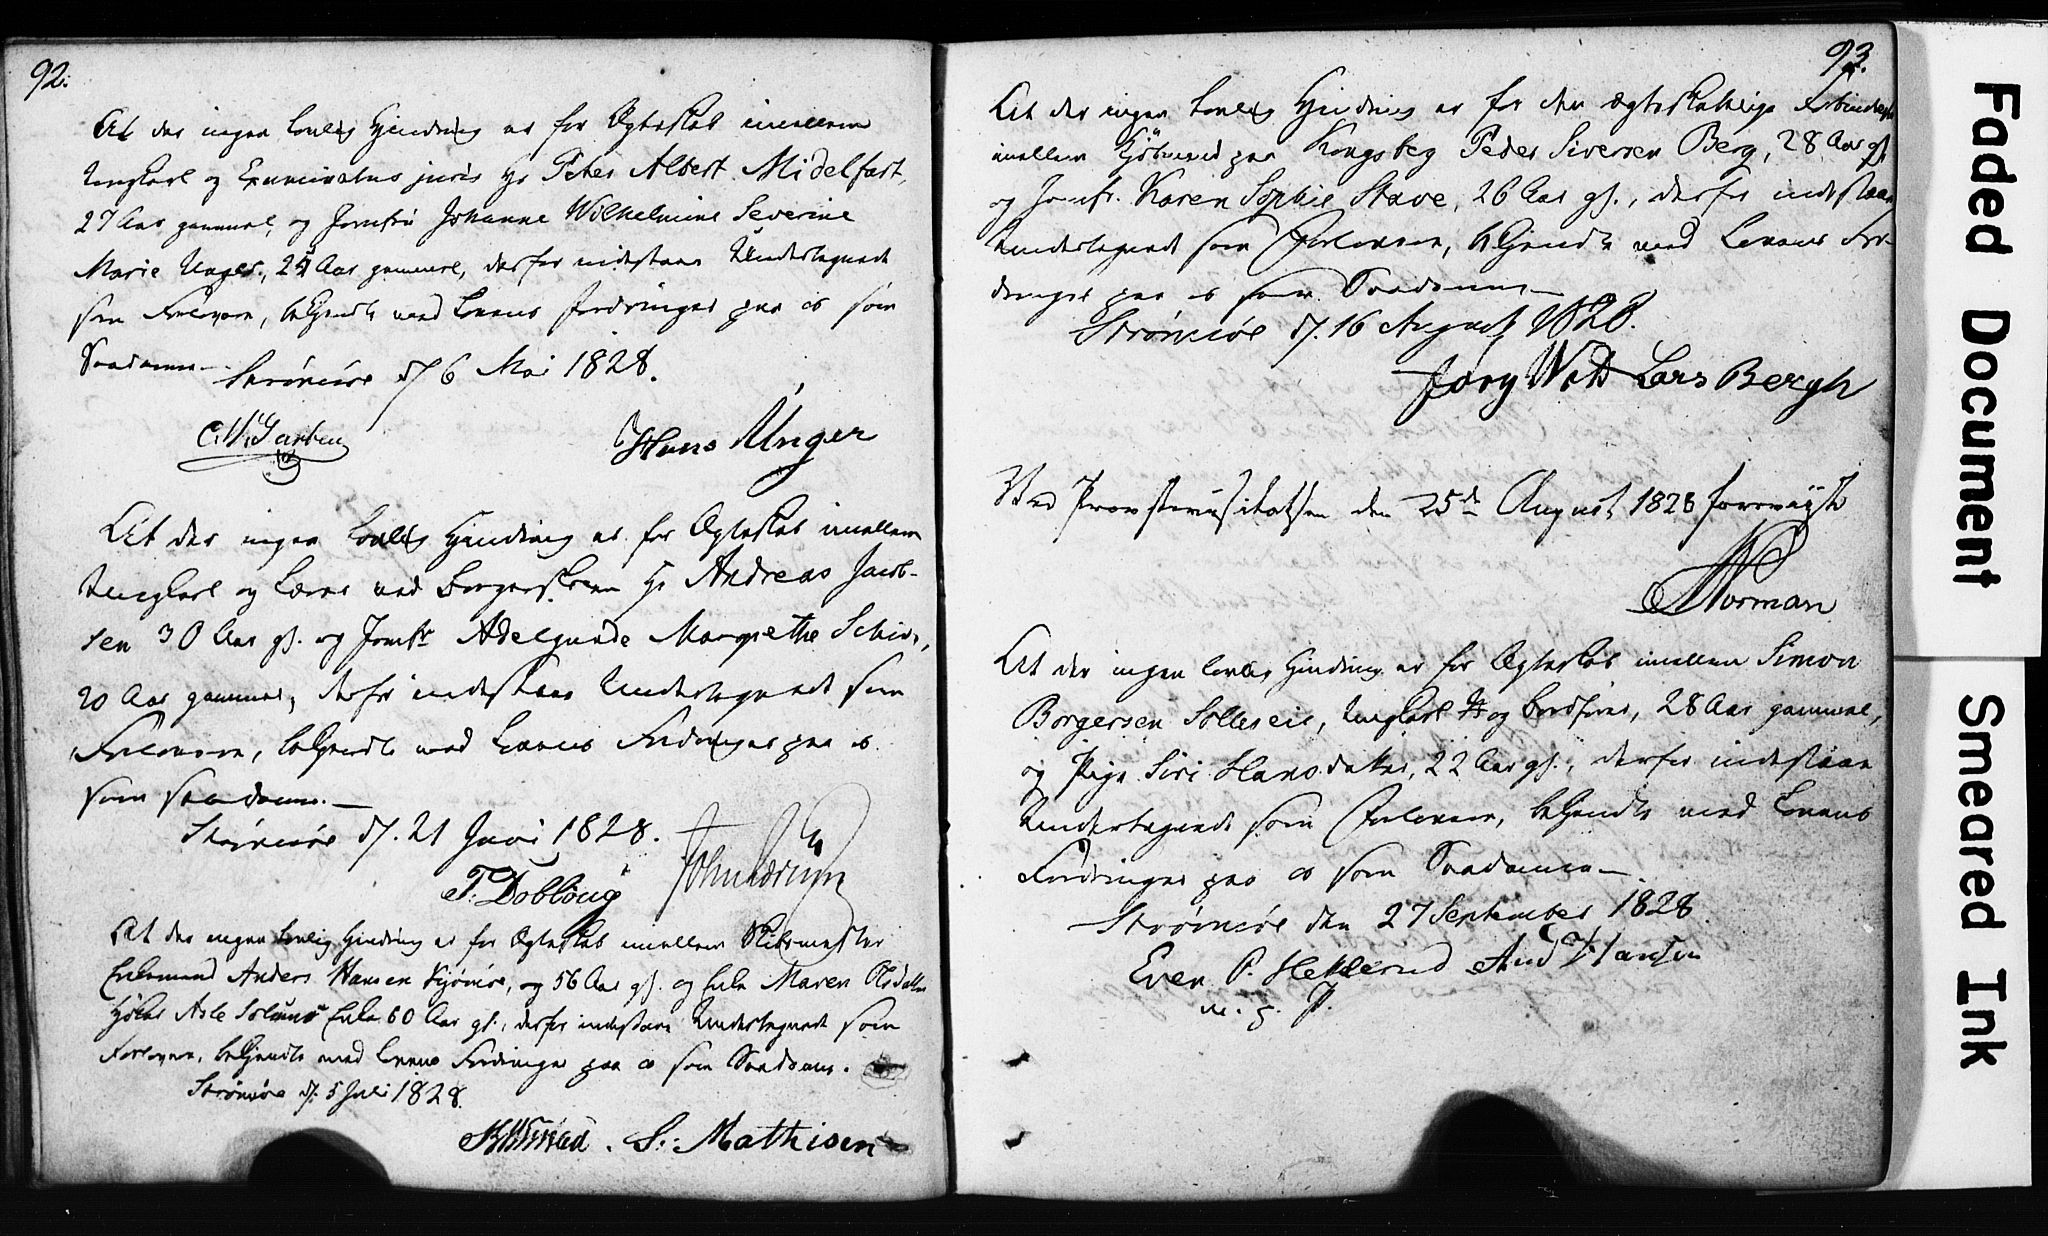 92.
At der ingen lovlig Hindring er for Ægteskab imellem
Ungkarl og Examinatus juris Hr Peter Albert Midelfart,
27 Aar gammel, og Jomfru Johanne Wilhelmine Severine
Marie Unger, 24 Aar gammel, derfor indestaae Undertegnede
som Forlovere, bekjendte med Lovens Fordringer paa os som
Saadanne.
Strømsøe d/ 6 Mai 1828.
Hans Unger
At der ingen lovlig Hindring er for Ægteskab imellem
Ungkarl og Lærer ved Borgerskolen Hr Andreas Jacob-
sen 30 Aar gl. og Jomfr Adelgunde Margrethe
20 Aar gammel, derfor indestaae Undertegnede som
Forlovere, bekjendte med Lovens Fordringer paa os
som saadanne.
Strømsøe d/. 21 Juni 1828.
T. Dobloug
At der ingen lovlig Hindring er for Ægteskab imellem
Enkemand Anders Hansen 56 Aar gl. og Enke Maren Olsdatter
Enke 60 Aar gl., derfor indestaae Undertegnede som
Forlovere, bekjendte med Lovens Fordringer paa os som Saadanne.
Strømsøe d/. 5 Juli 1828.
S. Mathisen
93.
At der ingen lovlig Hindring er for den ægteskabelige Forbindelse
imellem Kjøbmand paa Kongsberg Peder Siversen Berg, 28 Aar gl.
og Jomfr. Karen Sophie Stave, 26 Aar gl., derfor indestaae
Undertegnede som Forlovere, bekjendte med Lovens For-
dringer paa os som Saadanne
Strømsøe d/. 16 August 1828.
Lars Bergh
Ved Provstevisitatsen den 25de August 1828 foreviist
Norman
At der ingen lovlig Hindring er for Ægteskab imellem Simon
Borgersen Ungkarl og 28 Aar gammel,
og Pige Siri Hansdatter, 22 Aar gl., derfor indestaae
Undertegnede som Forlovere, bekjendte med Lovens
Fordringer paa os som Saadanne.
Strømsøe den 27 September 1828
Even P. And Hansen
m. P.
Faded Document Smeared Ink